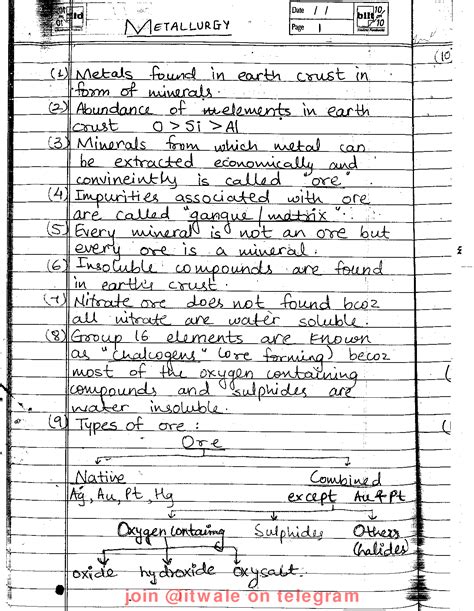 METALLURGY
Date / /
Page 1
(1) Metals found in earth crust in
form of minerals.
(2) Abundance of elements in earth
crust O > Si > Al
(3) Minerals from which metal can
be extracted economically and
convineintly is called "ore"
(4) Impurities associated with ore
are called "gangue/matrix".
(5) Every mineral is not an ore but
every ore is a mineral.
(6) Insoluble compounds are found
in earth's crust.
(7) Nitrate ore does not found bcoz
all nitrate are water soluble.
(8) Group 16 elements are known
as "chalcogens" (ore forming) becoz
most of the oxygen containing
compounds and sulphides are
water insoluble.
(9) Types of ore :
Ore
Native Combined
Ag, Au, Pt, Hg except Au & Pt
Oxygen containing Sulphides Others
(halides)
oxide hydroxide Oxysalt.
join @iitwale on telegram